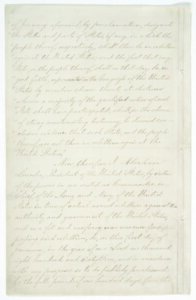 January aforesaid, by proclamation, designate
the States and parts of States, if any, in which the
people thereof, respectively, shall then be in rebellion
against the United States; and the fact that any
State, or the people thereof, shall on that day be, in
good faith, represented in the Congress of the United
States by members chosen thereto at elections
wherein a majority of the qualified voters of such
State shall have participated, shall, in the absence
of strong countervailing testimony, be deemed con-
clusive evidence that such State, and the people
thereof, are not then in rebellion against the
United States.
Now, therefore I, Abraham
Lincoln, President of the United States, by virtue
of the power in me vested as Commander-in-
Chief, of the Army and Navy of the United
States in time of actual armed rebellion against the
authority and government of the United States,
and as a fit and necessary war measure for sup-
pressing said rebellion, do, on this first day of
January, in the year of our Lord one thousand
eight hundred and sixty three, and in accordance
with my purpose so to do publicly proclaimed
for the full period of one hundred days, from the